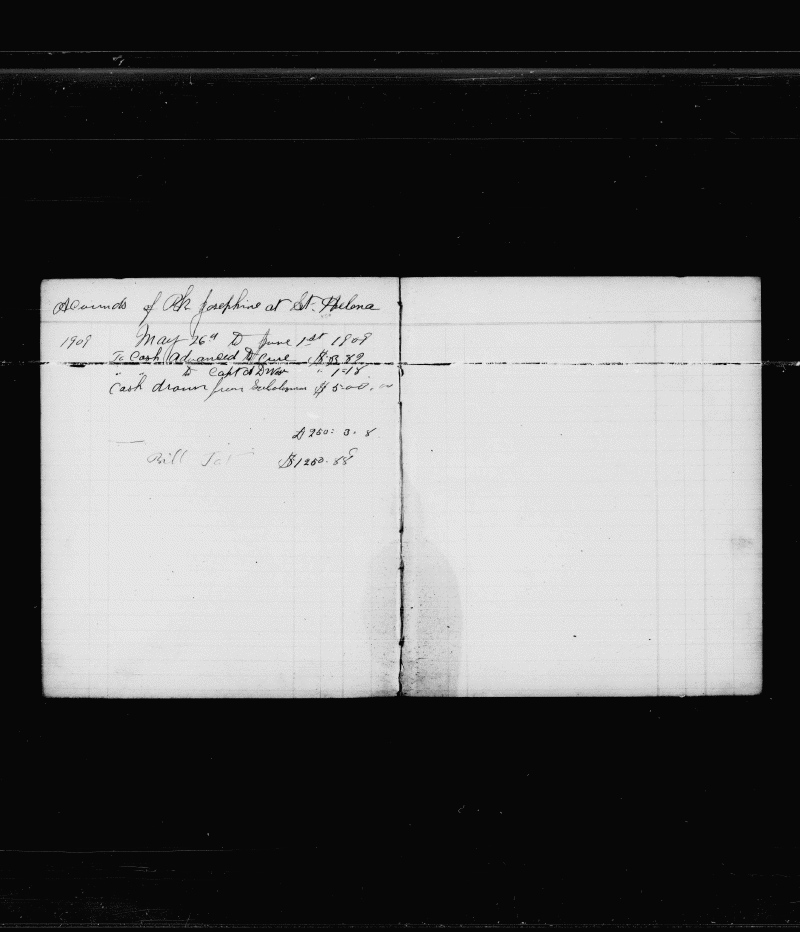 Acounts of Bk Josephine at St. Helena
1909 May 26th To June 1st 1909
To Cash Advanced To Crew $
" " To Capt d " 1-18
Cash drawn from $ 500.00
£ 250: 3. 8
Bill $1250.88